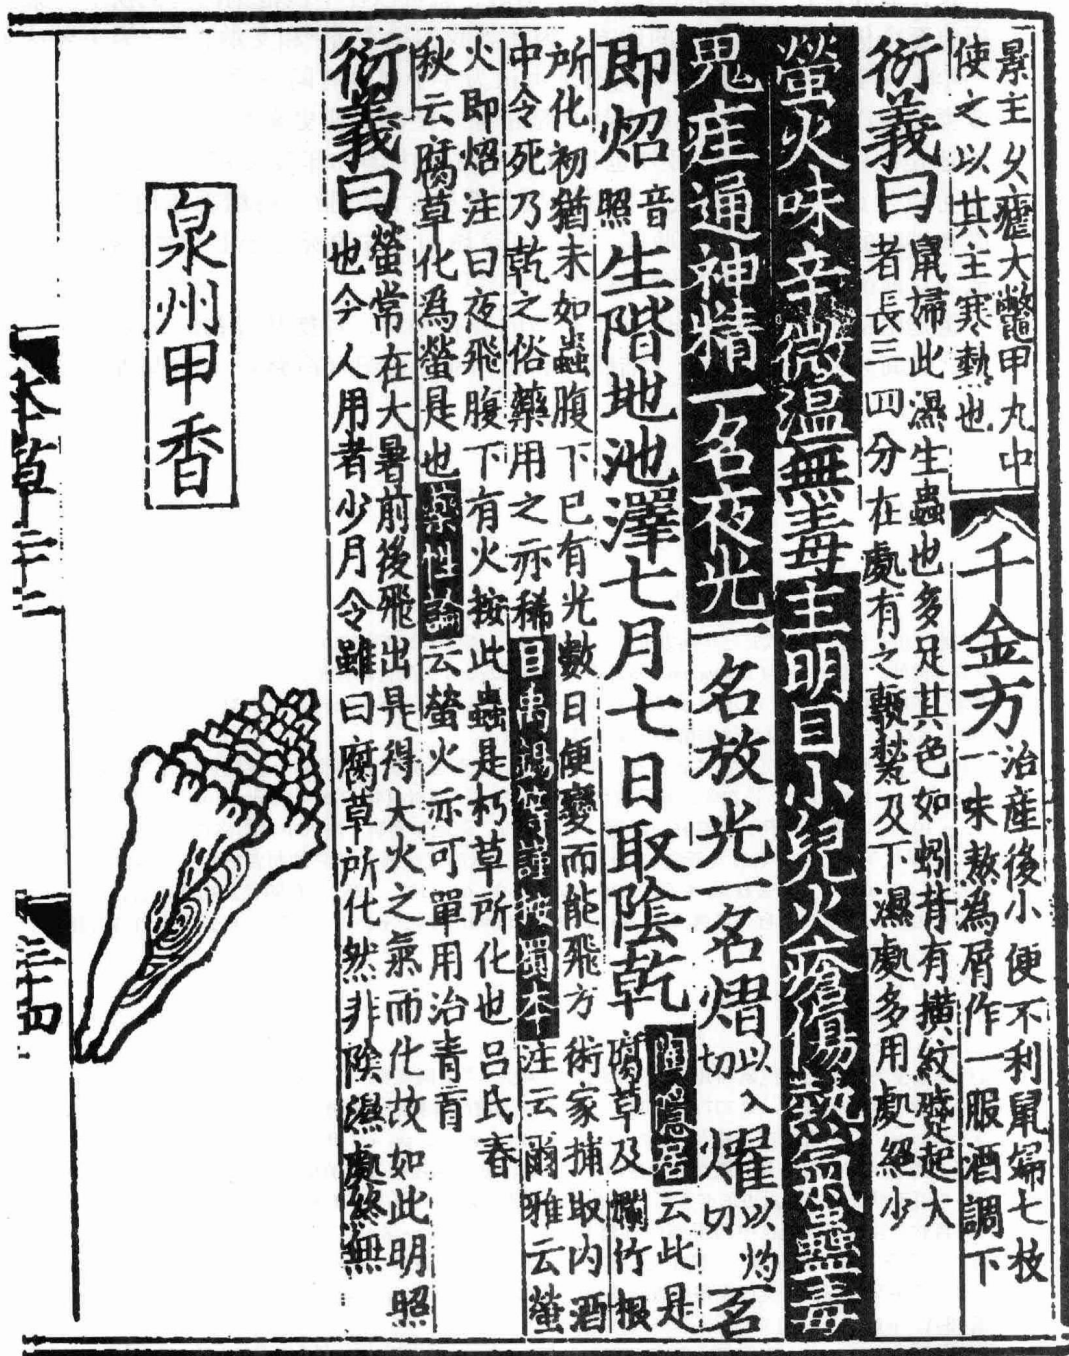 景主久瘧大鼈甲丸中
使之以其主寒熱也
千金方
治産後小便不利鼠婦七枝
一味熬為屑作一服酒調下
衍義曰
鼠婦此濕生蟲也多足其色如蚓背有橫紋蹙起大
者長三四分在處有之塼甃及下濕處多用處絕少
螢火味辛微温無毒主明目小兒火瘡傷熱氣蠱毒
鬼疰通神精一名夜光一名放光一名熠以入切燿以灼切一名
即炤音照生階地池澤七月七日取陰乾
陶隱居云此是
腐草及爛竹根
所化初猶未如蟲腹下已有光數日便變而能飛方術家捕取内酒
中令死乃乾之俗藥用之亦稀臣禹錫等謹按蜀本注云爾雅云螢
火即炤注曰夜飛腹下有火按此蟲是朽草所化也吕氏春
秋云腐草化爲螢是也藥性論云螢火亦可單用治青盲
衍義曰
螢常在大暑前後飛出是得大火之氣而化故如此明照
也今人用者少月令雖曰腐草所化然非陰濕處終無
泉州甲香
本草二十二
三十四